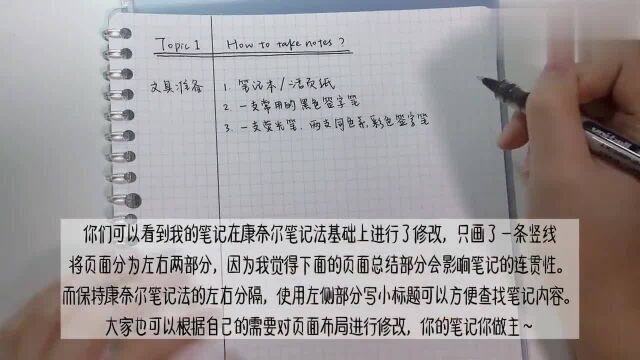 Topic 1 How to take notes?
文具准备 1. 笔记本/活页纸
2. 一支常用的黑色签字笔
3. 一支荧光笔、两支同色系彩色签字笔
你们可以看到我的笔记在康奈尔笔记法基础上进行了修改,只画了一条竖线
将页面分为左右两部分,因为我觉得下面的页面总结部分会影响笔记的连贯性。
而保持康奈尔笔记法的左右分隔,使用左侧部分写小标题可以方便查找笔记内容。
大家也可以根据自己的需要对页面布局进行修改,你的笔记你做主~